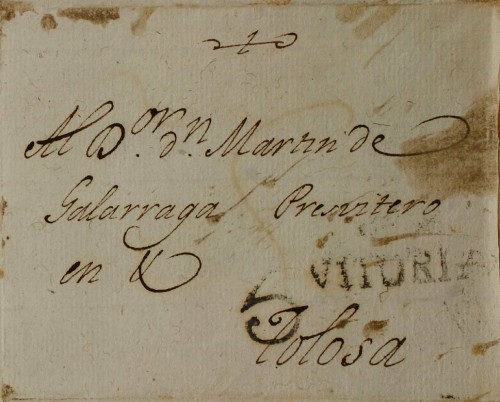 Al D.ᵒʳ dⁿ. Martin de
Galarraga Presvitero
en &
VITORIA
Tolosa